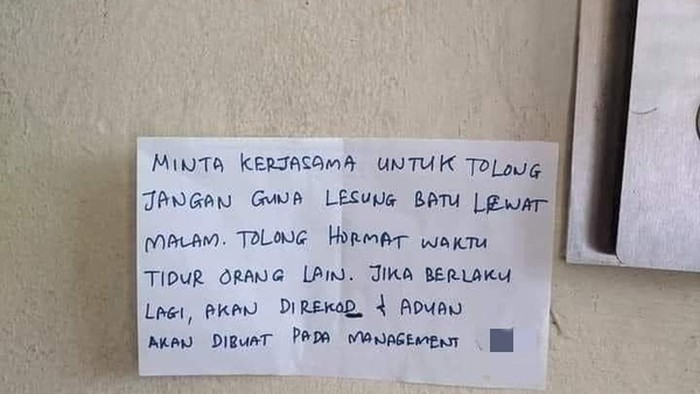 MINTA KERJASAMA UNTUK TOLONG
JANGAN GUNA LESUNG BATU LEWAT
MALAM. TOLONG HORMAT WAKTU
TIDUR ORANG LAIN. JIKA BERLAKU
LAGI, AKAN DIREKOD & ADUAN
AKAN DIBUAT PADA MANAGEMENT